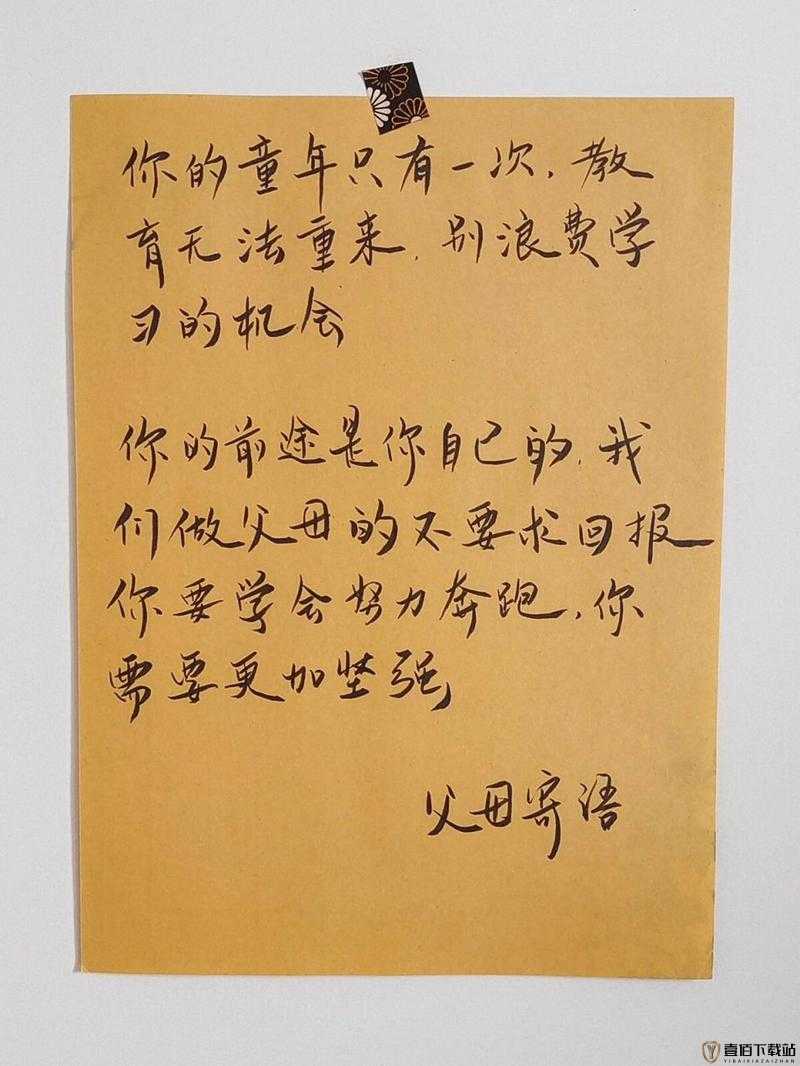 你的童年只有一次，教
育无法重来，别浪费学
习的机会
你的前途是你自己的，我
们做父母的不要求回报
你要学会努力奔跑，你
需要更加坚强
父母寄语
壹佰下载站
YIBAIXIAZAIZHAN